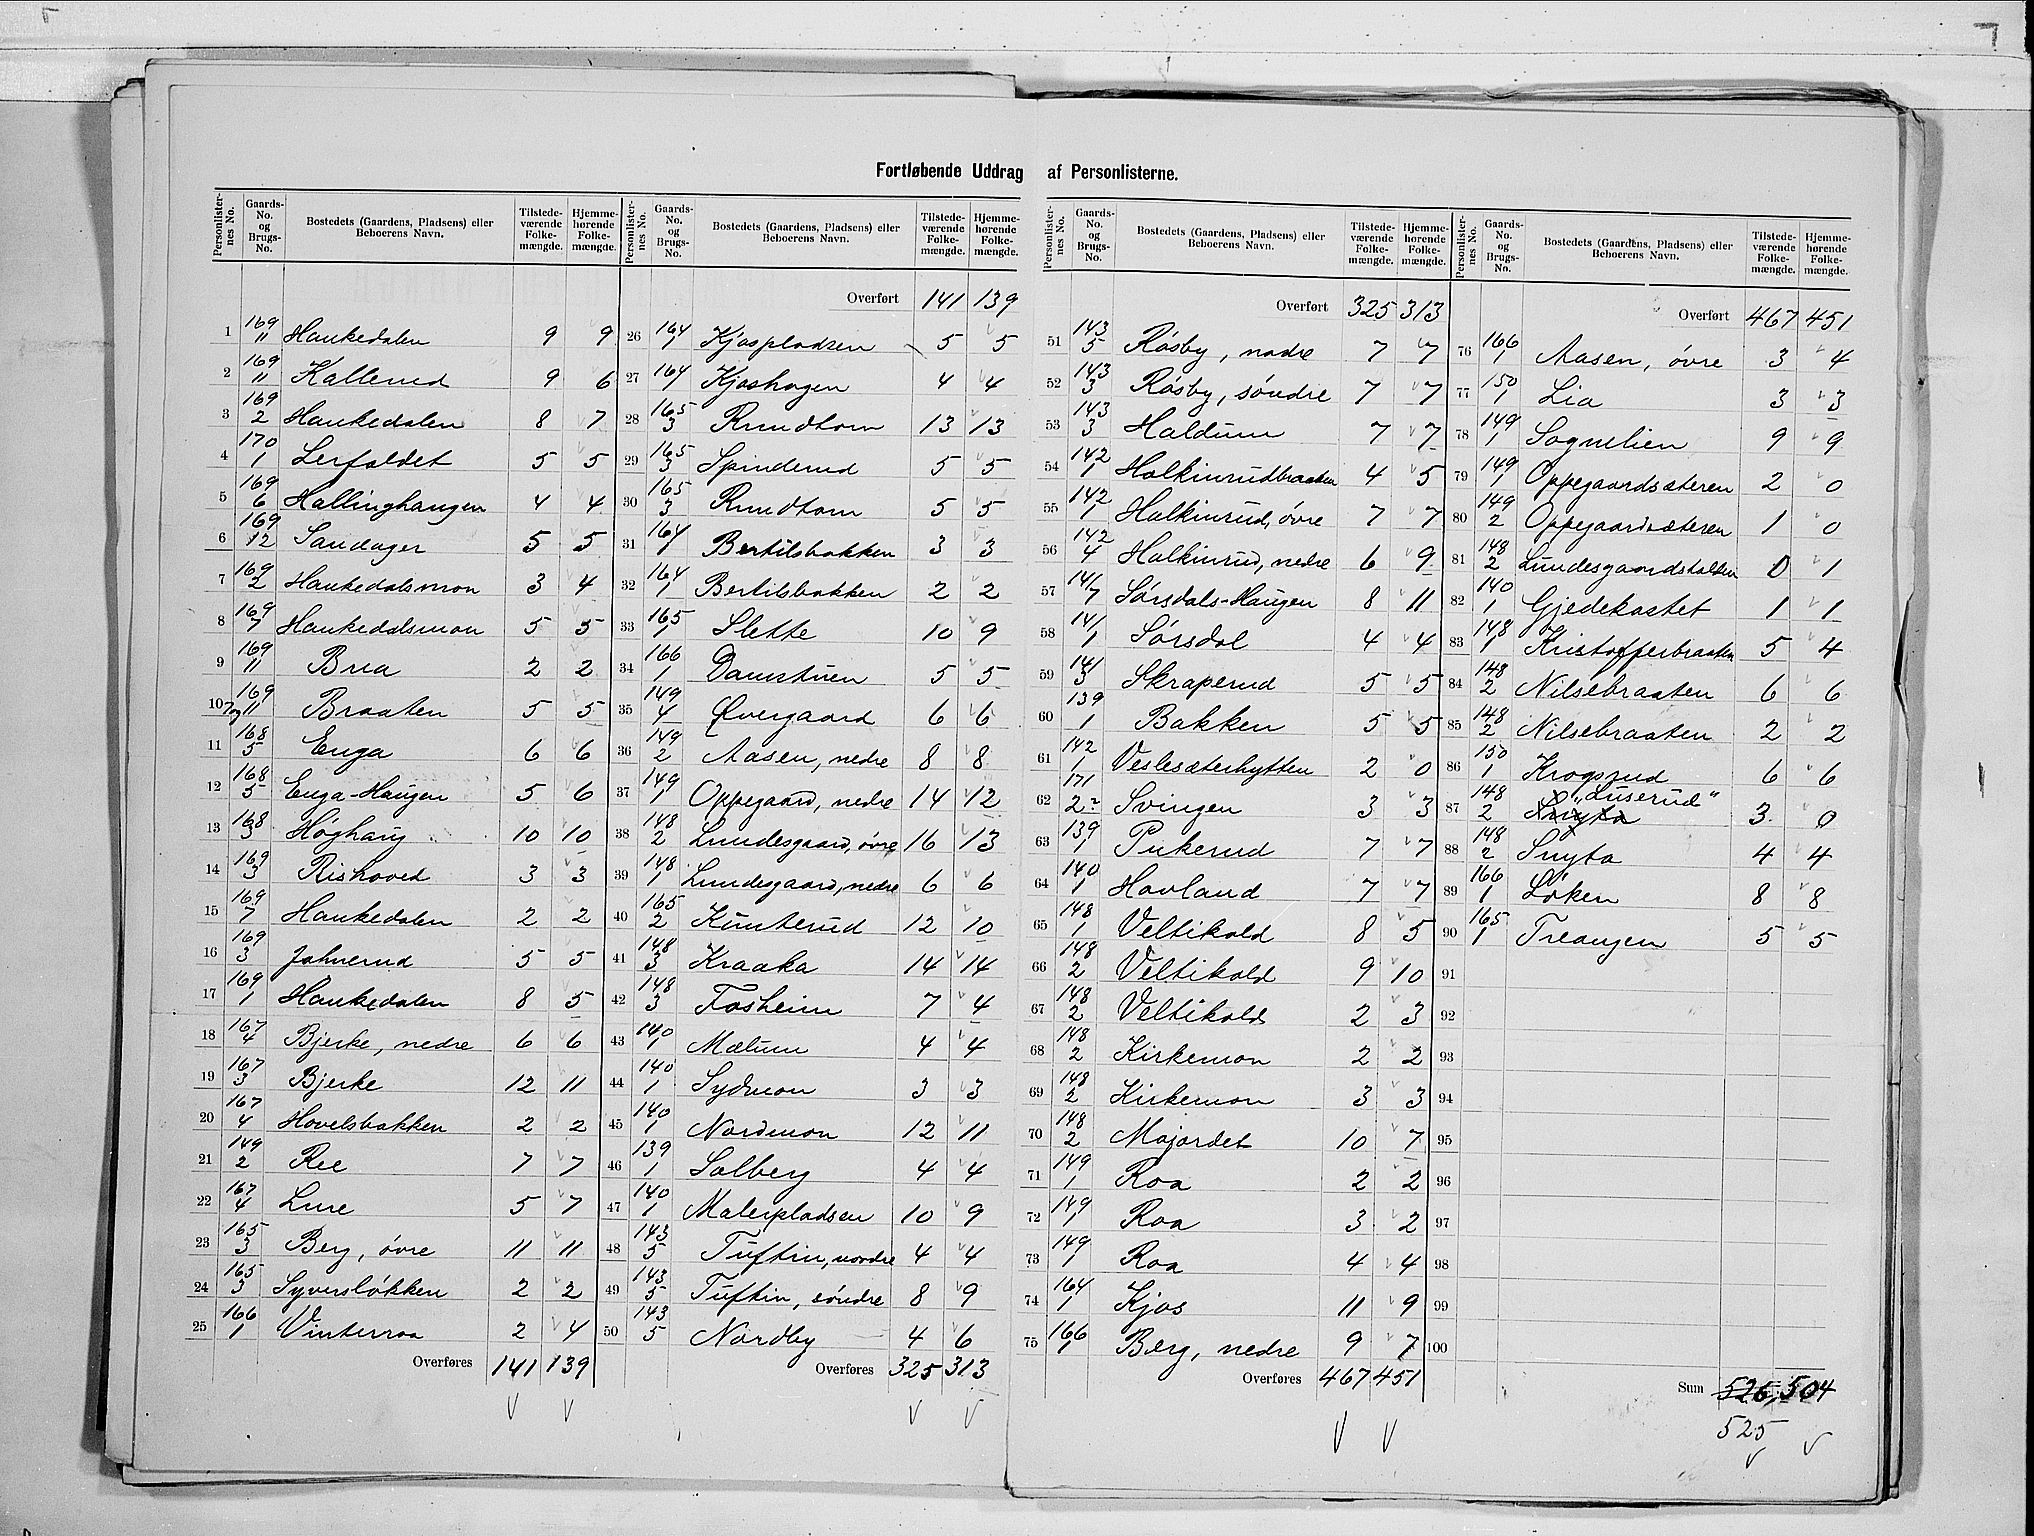 Fortløbende Uddrag af Personlisterne.
Personlisternes No. | Gaards-No. og Brugs-No. | Bostedets (Gaardens, Pladsens) eller Beboerens Navn. | Tilstedeværende Folkemængde. | Hjemmehørende Folkemængde.
1 169/11 Haukedalen 9 9
2 169/11 Kallerud 9 6
3 169/2 Haukedalen 8 7
4 170/1 Lerfaldet 5 5
5 169/6 Hallinghaugen 4 4
6 169/12 Sandager 5 5
7 169/2 Haukedalsmon 3 4
8 169/7 Haukedalsmon 5 5
9 169/11 Brua 2 2
10 169/11 Braaten 5 5
11 168/5 Enga 6 6
12 168/5 Enga-Haugen 5 6
13 168/3 Høghaug 10 10
14 169/3 Rishoved 3 3
15 169/7 Haukedalen 2 2
16 169/3 Johnerud 5 5
17 169/1 Haukedalen 8 5
18 167/4 Bjerke, nedre 6 6
19 167/3 Bjerke 12 11
20 167/4 Hovelsbakken 2 2
21 149/2 Ree 7 7
22 167/4 Lure 5 7
23 165/3 Berg, øvre 11 11
24 165/3 Syversløkken 2 2
25 166/1 Vinterroa 2 4
Overføres 141 139
Personlisternes No. | Gaards-No. og Brugs-No. | Bostedets (Gaardens, Pladsens) eller Beboerens Navn. | Tilstedeværende Folkemængde. | Hjemmehørende Folkemængde.
Overført 141 139
26 164/1 Kjospladsen 5 5
27 164/1 Kjoshagen 4 4
28 165/3 Rundtom 13 13
29 165/3 Spinderud 5 5
30 165/3 Rundtom 5 5
31 164/1 Bertilsbakken 3 3
32 164/1 Bertilsbakken 2 2
33 165/1 Slette 10 9
34 166/1 Damstuen 5 5
35 149/4 Øvergaard 6 6
36 149/2 Aasen, nedre 8 8
37 149/1 Oppegaard, nedre 14 12
38 148/2 Lundesgaard, øvre 16 13
39 148/1 Lundesgaard, nedre 6 6
40 165/2 Kunterud 12 10
41 148/3 Kraaka 14 14
42 148/3 Fosheim 7 4
43 140/1 Mælum 4 4
44 140/1 Sydmon 3 3
45 140/1 Nordmon 12 11
46 139/1 Solberg 4 4
47 140/1 Malerpladsen 10 9
48 143/5 Tuftin, nordre 4 4
49 143/5 Tuftin, søndre 8 9
50 143/5 Nordby 4 6
Overføres 325 313
Personlisternes No. | Gaards-No. og Brugs-No. | Bostedets (Gaardens, Pladsens) eller Beboerens Navn. | Tilstedeværende Folkemængde. | Hjemmehørende Folkemængde.
Overført 325 313
51 143/5 Røsby, nodre 7 7
52 143/3 Røsby, søndre 7 7
53 143/3 Haldum 7 7
54 142/1 Halkinrudbraaten 4 5
55 142/1 Halkinrud, øvre 7 7
56 142/4 Halkinrud, nedre 6 9
57 141/7 Sørsdals-Haugen 8 11
58 141/1 Sørsdal 4 4
59 141/3 Skraperud 5 5
60 139/1 Bakken 5 5
61 142/1 Veslesæterhytten 2 0
62 171/2 Svingen 3 3
63 139/1 Pukerud 7 7
64 140/1 Hovland 7 7
65 148/1 Veltikold 8 5
66 148/2 Veltikold 9 10
67 148/2 Veltikold 2 3
68 148/2 Kirkemon 2 2
69 148/2 Kirkemon 3 3
70 148/2 Mojordet 10 7
71 149/1 Roa 2 2
72 149/1 Roa 3 2
73 149/1 Roa 4 4
74 164/1 Kjos 11 9
75 166/1 Berg, nedre 9 7
Overføres 467 451
Personlisternes No. | Gaards-No. og Brugs-No. | Bostedets (Gaardens, Pladsens) eller Beboerens Navn. | Tilstedeværende Folkemængde. | Hjemmehørende Folkemængde.
Overført 467 451
76 166/1 Aasen, øvre 3 4
77 150/1 Lia 3 3
78 149/1 Sognelien 9 9
79 149/1 Oppegaardsæteren 2 0
80 149/2 Oppegaardsæteren 1 0
81 148/2 Lundesgaardskalken 0 1
82 140/1 Gjedekastet 1 1
83 148/1 Kristofferbraaten 5 4
84 148/2 Nilsebraaten 6 6
85 148/2 Nilsebraaten 2 2
86 150/1 Krogsrud 6 6
87 148/2 Snyta "Luserud" 3 0
88 148/2 Snyta 4 4
89 166/1 Løken 8 8
90 165/1 Treangen 5 5
91
92
93
94
95
96
97
98
99
100
Sum 526, 504
525